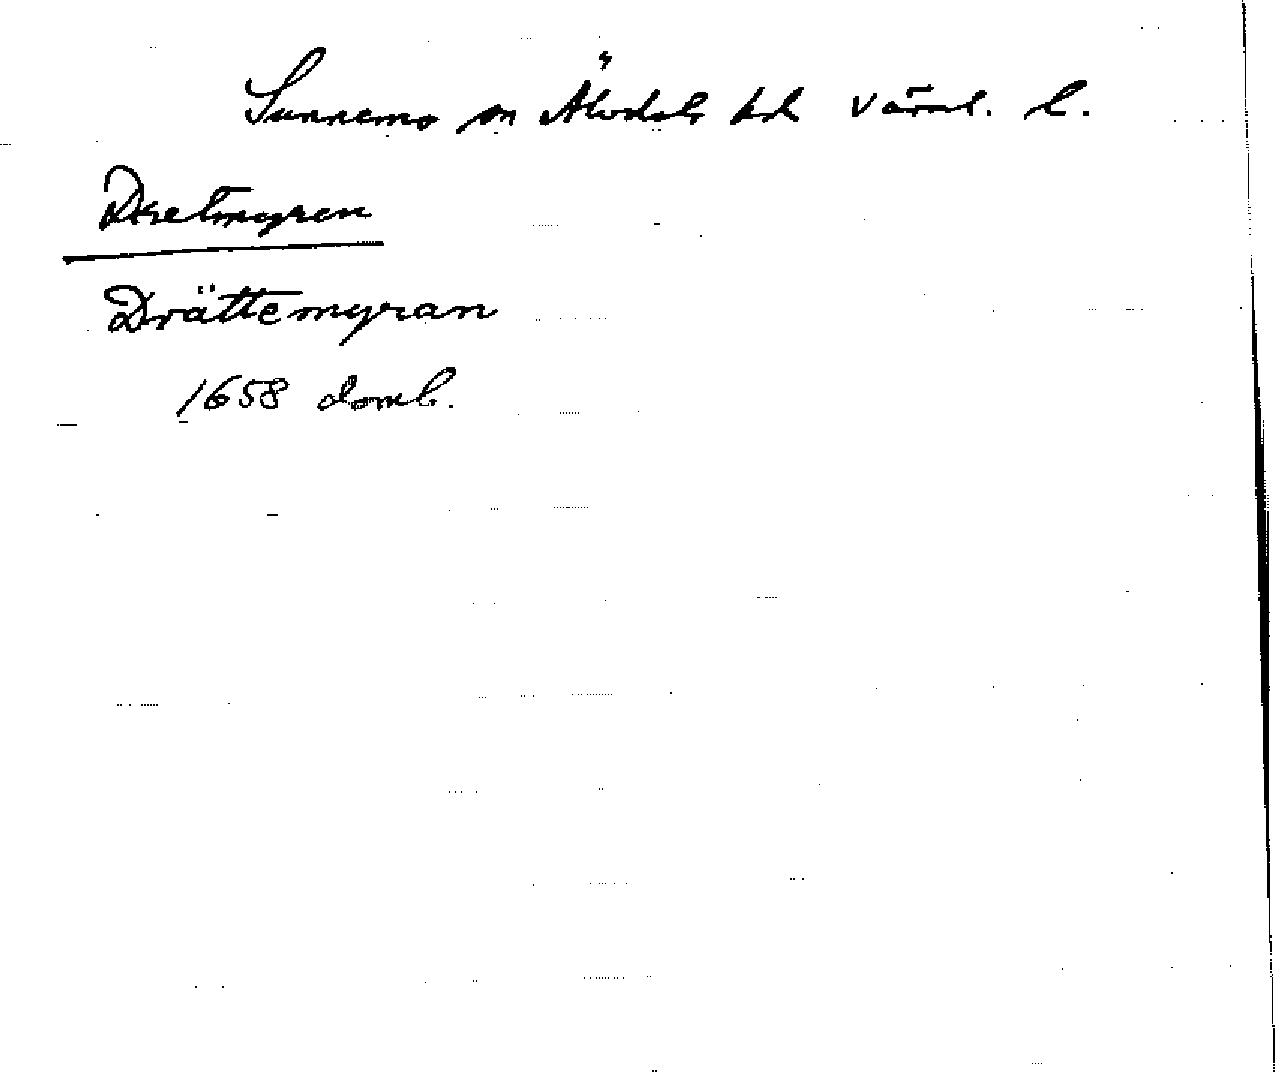 Sunnemo sn Älvdals hd Värml. l.
Dretmyren
Drättemyran
1658 domb.